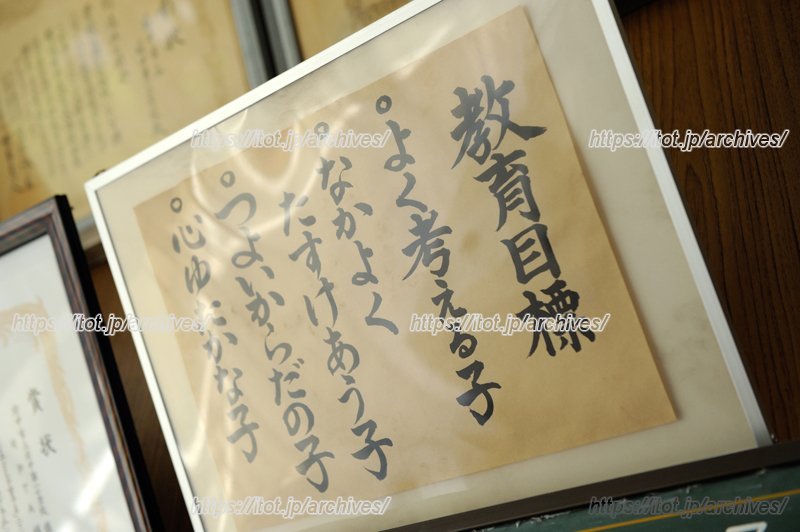 教育目標
○よく考える子
○なかよく
たすけあう子
○つよいからだの子
○心ゆたかな子
賞状
https://itot.jp/archives/
https://itot.jp/archives/
https://itot.jp/archives/
https://itot.jp/archives/
https://itot.jp/archives/
https://itot.jp/archives/